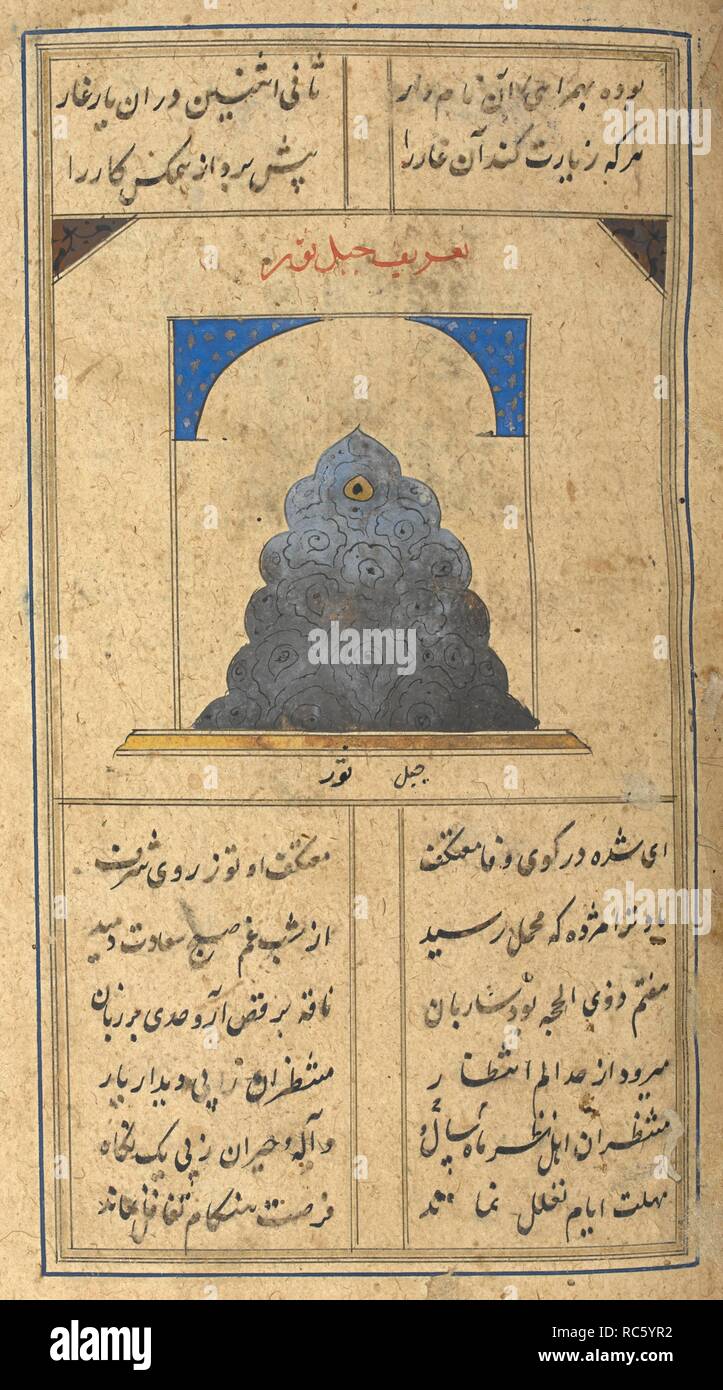 بوده بهمراهی آن نامدار ثانی اثنین دران یار غار
هرکه زیارت کند آن غار را پیش برد از همه کس کار را
تعریف جبل نور
جبل نور
ای شده در کوی وفا معتکف معتکف او تو ز روی شرف
باد ترا مژده که محمل رسید از شب غم صبح سعادت دمید
هفتم ذوی الحجه بود ساربان ناقه برقص آر و حدی بر زبان
میرود از حد الم انتظار منتظران را پی دیدار یار
منتظران اهل نظر ماه و سال واله و حیران ز پی یک نگاه
مهلت ایام تخلل نماند فرصت هنگام تغافل نماند
alamy
Image ID: RC5YR2
www.alamy.com